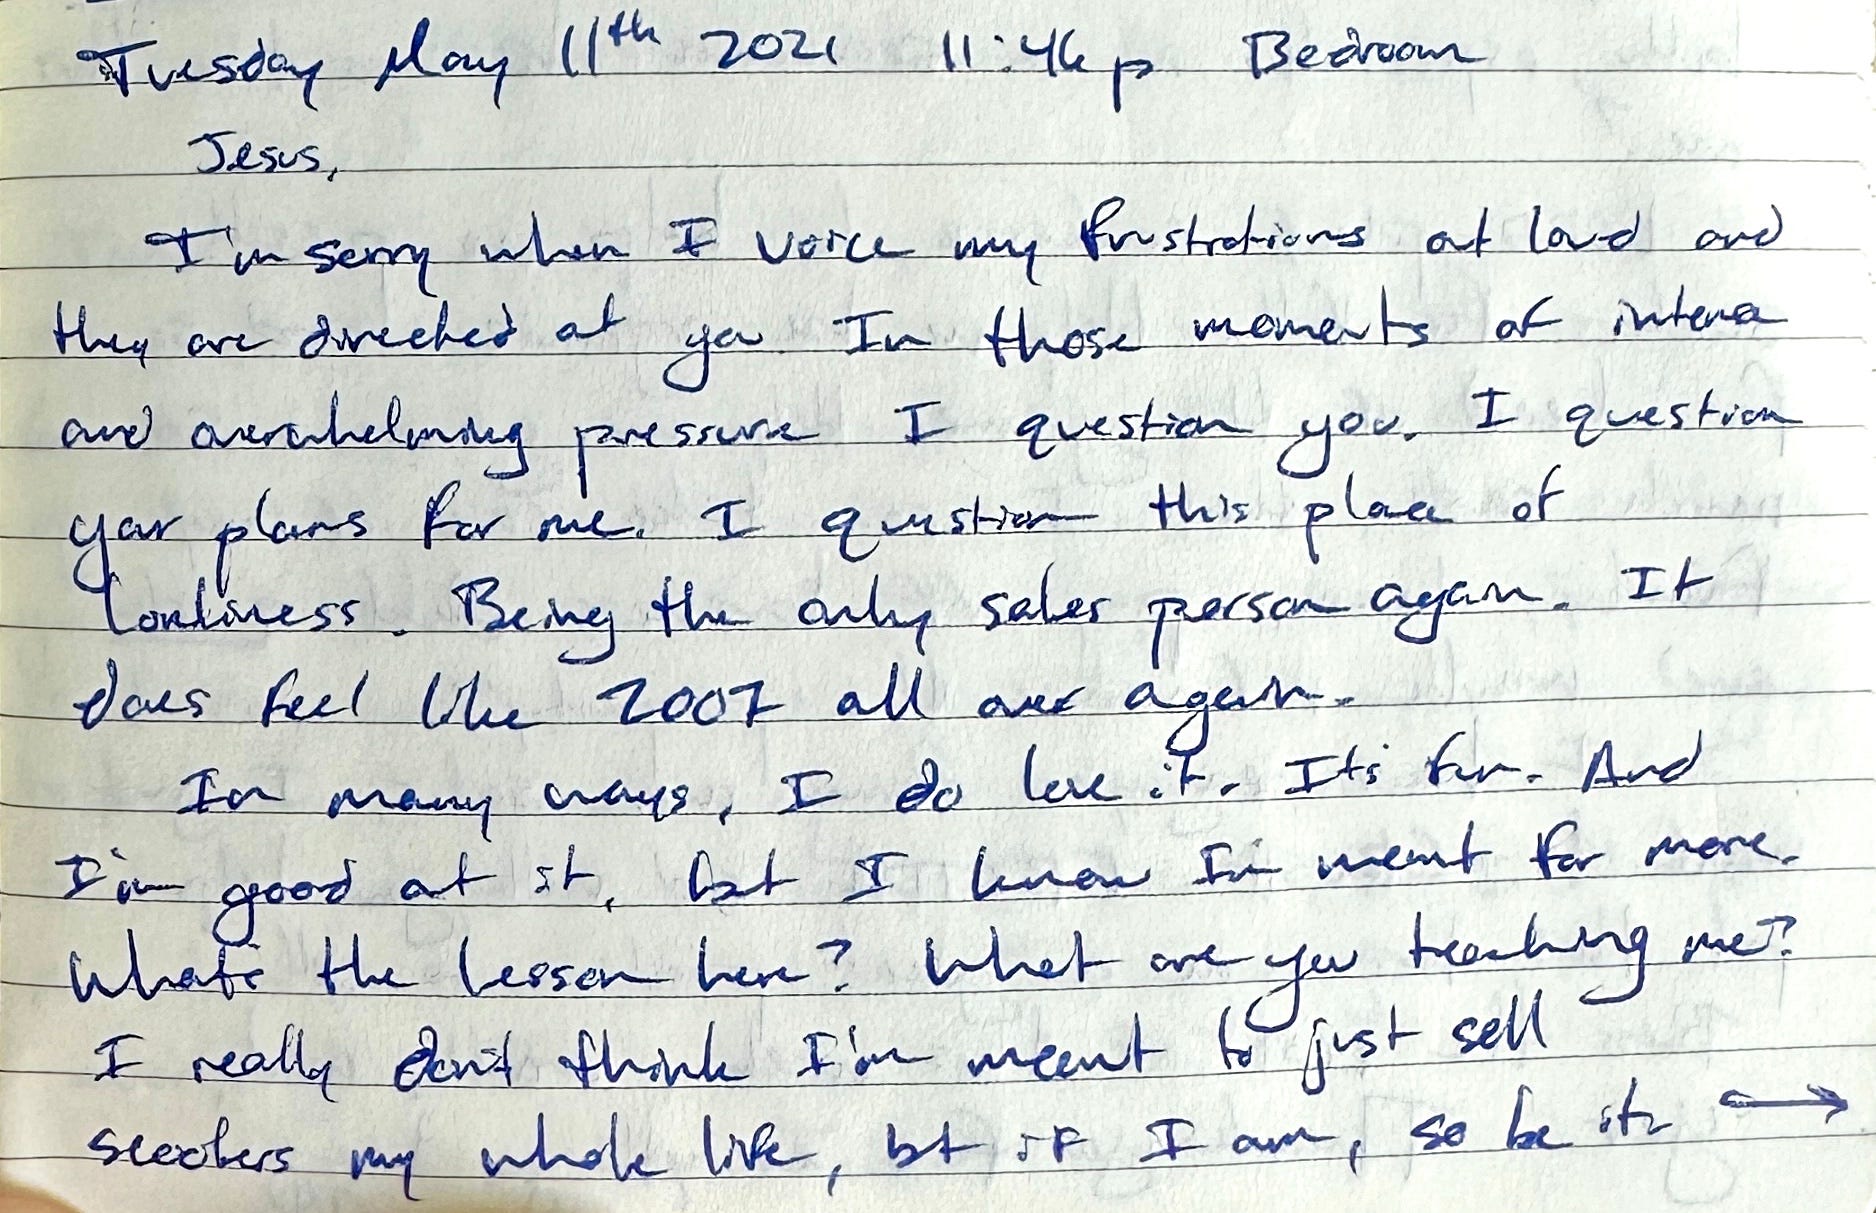 Tuesday May 11th 2021 11:46p Bedroom
Jesus,
I'm sorry when I voice my frustrations out loud and
they are directed at you In those moments of intense
and overwhelming pressure I question you. I question
your plans for me. I question this place of
lonliness. Being the only sales person again. It
does feel like 2007 all over again.
In many ways, I do love it. It's fun. And
I'm good at it, but I know I'm meant for more.
What's the lesson here? What are you teaching me?
I really don't think I'm meant to just sell
scooters my whole life, but if I am, so be it. →